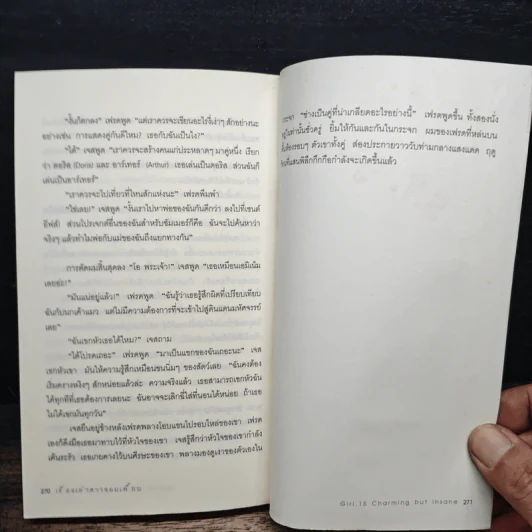 "งั้นก็ตกลง" เฟรดพูด "แต่เราควรจะเขียนอะไรโง่ๆ สักอย่างนะ
อย่างเช่น การแสดงคู่กันดีไหม? เธอกับฉันเป็นไง?"
"ได้" เจสพูด "เราควรจะสร้างคนแก่ประหลาดๆ มาคู่หนึ่ง เรียก
ว่า ดอริส (Doris) และ อาร์เทอร์ (Arthur) เธอเล่นเป็นดอริส ส่วนฉันก็
เล่นเป็นอาร์เทอร์"
"เราควรจะไปเที่ยวที่ไหนสักแห่งนะ" เฟรดพึมพำ
"ใช่เลย!" เจสพูด "งั้นเราไปหาพ่อของฉันกันดีกว่า ลงไปที่เซนต์
อีฟส์! ส่วนโปรเจกต์อื่นของฉันสำหรับซัมเมอร์ก็คือ ฉันจะไปค้นหาว่า
จริงๆ แล้วทำไมพ่อกับแม่ของฉันถึงแยกทางกัน"
การตัดผมสิ้นสุดลง "โอ พระเจ้า!" เจสพูด "เธอเหมือนเอมิเน็ม
เลยอ่ะ!"
"มันแน่อยู่แล้ว!" เฟรดพูด "ฉันรู้ว่าเธอรู้สึกผิดที่เปรียบเทียบ
ฉันกับนกเค้าแมว แต่ไม่มีความต้องการที่จะเข้าไปสู่ดินแดนมหัศจรรย์
เลย"
"ฉันเขกหัวเธอได้ไหม?" เจสถาม
"ได้โปรดเถอะ" เฟรดพูด "มาเป็นแขกของฉันเถอะนะ" เจส
เขกหัวเขา มันให้ความรู้สึกเหมือนขนนิ่มๆ ของสัตว์เลย "ฉันคงต้อง
เริ่มครางหงิงๆ สักหน่อยแล้วล่ะ ความจริงแล้ว เธอสามารถเขกหัวฉัน
ได้ทุกที่ที่เธอต้องการเลยนะ ฉันอาจจะเลิกฉี่ใส่ที่นอนได้หน่อย ถ้าเธอ
ไม่ได้เขกมันทุกวัน"
เจสยืนอยู่ข้างหลังเฟรดพลางโอบแขนไปรอบไหล่ของเขา เฟรด
เองก็ดึงมือเธอมาทาบไว้ที่หัวใจของเขา เจสรู้สึกว่าหัวใจของเขากำลัง
เต้นระรัว เธอเกยคางไว้บนศีรษะของเขา พลางมองดูเงาของตัวเองใน
270
กระจก "ช่างเป็นคู่ที่น่าเกลียดอะไรอย่างนี้" เฟรดพูดขึ้น ทั้งสองนั่ง
อยู่ในท่านั้นชั่วครู่ ยิ้มให้กันและกันในกระจก ผมของเฟรดที่หล่นบน
พื้นห้องรอบๆ ตัวเขาทั้งคู่ ส่องประกายวาววับท่ามกลางแสงแดด ฤดู
ร้อนที่แสนพิลึกกึกกือกำลังจะเกิดขึ้นแล้ว
Girl,15 Charming but Insane 271